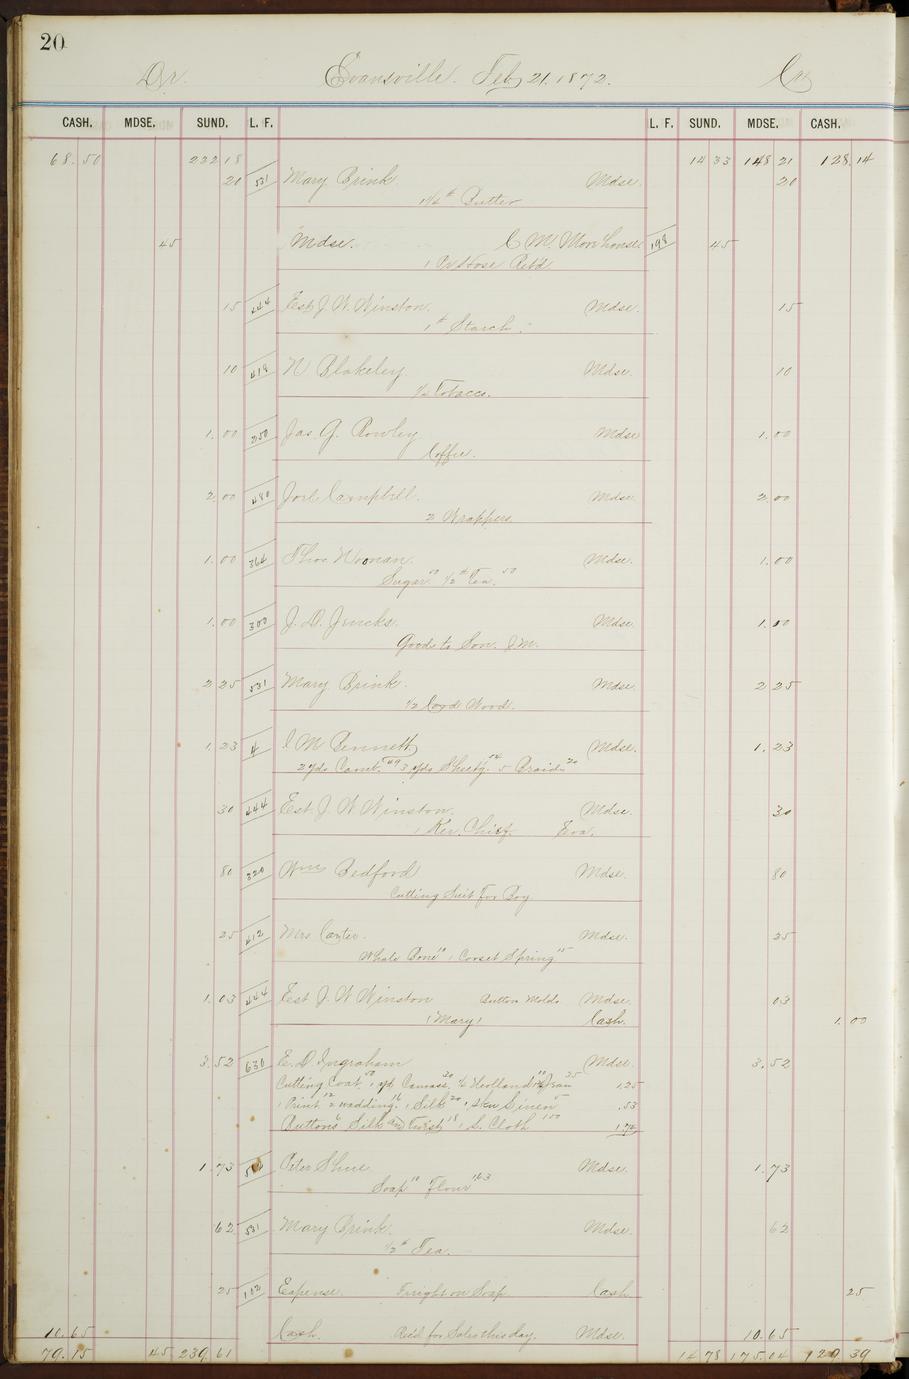 20
Dr. Evansville. Feb 21. 1872. Cr
CASH. MDSE. SUND. L. F. L. F. SUND. MDSE. CASH.
68.50 232 18 14 33 148 21 128.14
20 531 Mary Brink. Mdse. 20
Butter
45 Mdse. C M. Morehouse 198 45
1 Pr Hose Ret'd
15 444 Est J. W. Winston. Mdse. 15
1 # Starch.
10 419 N Blakeley. Mdse. 10
½ Tobacco.
1.00 250 Jas. G. Rowley Mdse 1.00
Coffee.
2 00 480 Joel Campbell. Mdse. 2.00
2 Wrappers.
1.00 364 Thos Noonan. Mdse. 1.00
Sugar 50 ½ # Tea. 50
1.00 300 J. D. Jencks. Mdse. 1.00
Goods to Son. J.M.
2 25 531 Mary Brink. Mdse. 2 25
½ Cord Wood.
1.23 4 C M Bennett Mdse. 1.23
2 yds Camb. 49 3 yds Sheetg. 54 5 Braids 20
30 444 Est. J. W. Winston. Mdse. 30
1 Ker. Chief. Eva.
80 320 Wm Bedford Mdse. 80
Cutting Suit For Boy
25 412 Mrs Carter. Mdse. 25
Whale Bone 10 1 Corset Spring 15
1.03 444 Est J. W Winston Button Molds Mdse. 03
(Mary) Cash. 1.00
3.52 630 E. D. Ingraham Mdse. 3.52
Cutting Coat 50 1 yd Canvass 20 ½ Holland 10 Jean 25 1.25
1 Print 12 2 wadding 1 Silk 20 1 Skn Linen 5 .53
Buttons 6 Silk and Twist 18 1 S. Cloth 150 1.74
1.73 Peter Shue Mdse. 1.73
Soap 10 Flour 1.63
62 531 Mary Brink. Mdse. 62
½ # Tea.
25 102 Expense. Freight on Soap Cash 25
10.65 Cash. Rec'd for Sales this day. Mdse. 10.65
79.15 45 239 61 14 78 175.04 129 39